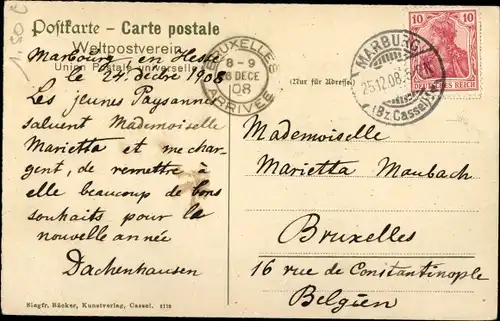 1.50 €
Postkarte - Carte postale
Weltpostverein
Union Postale universelle
Marbourg en Hesse
le 24. decbre 1908
Les jeunes Paysannes
saluent Mademoiselle
Marietta et me char-
gent, de remettre à
elle beaucoup de bons
souhaits pour la
nouvelle année
Dachenhausen
Siegfr. Bäcker, Kunstverlag, Cassel.
BRUXELLES
8-9
DECE
08
ARRIVÉE
(Nur für Adresse)
MARBURG
25.12.08.
(Bz. Cassel)
10 10
DEUTSCHES REICH
Mademoiselle
Marietta Maubach
Bruxelles
16 rue de Constantinople
Belgien